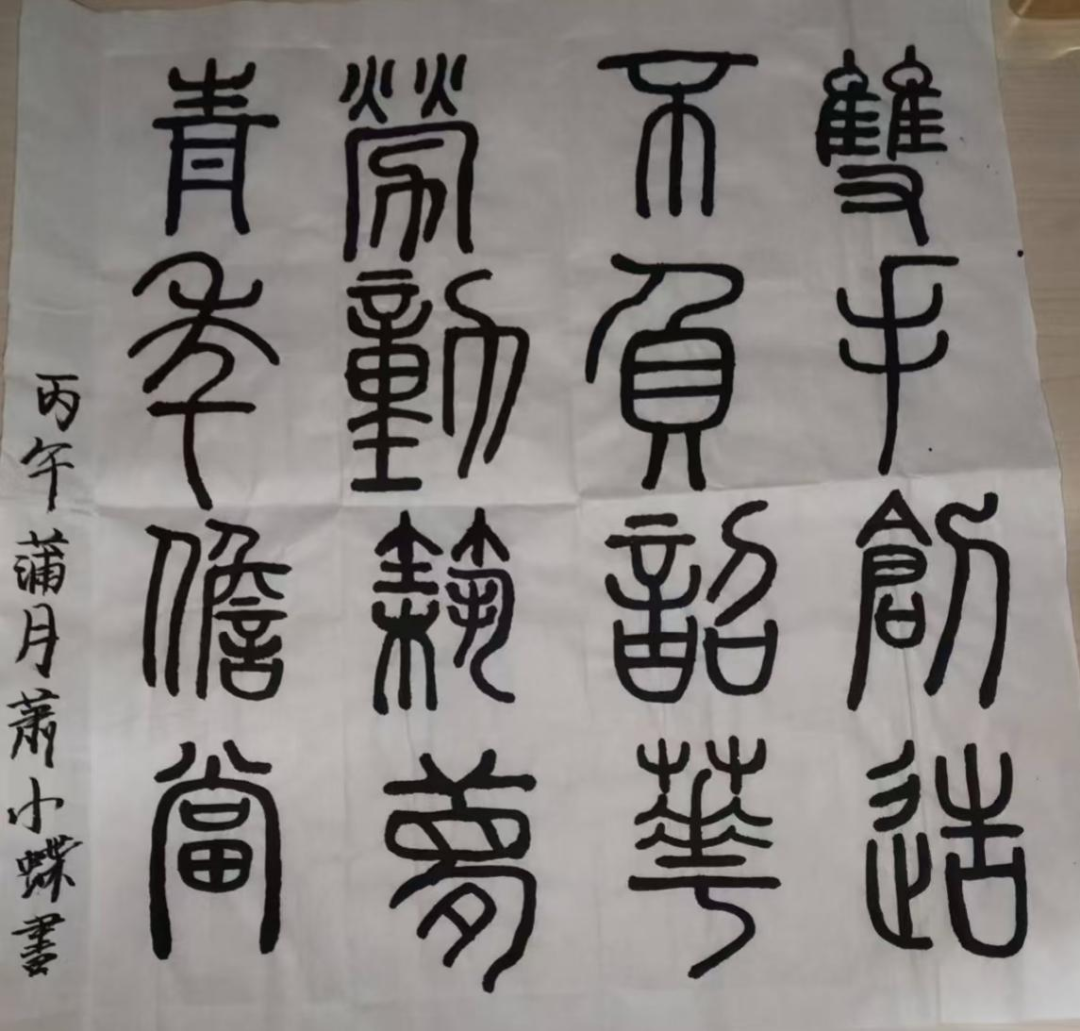 雙手創造
不負韶華
勞動築夢
青年擔當
丙午蒲月蕭小蝶書